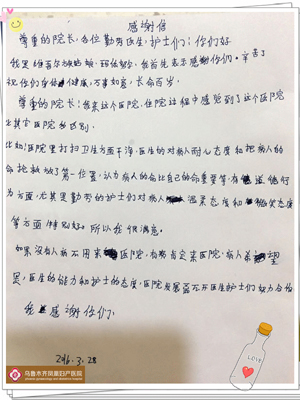 感谢信
尊重的院长，各位勤劳医生，护士们；你们好
我是维吾尔族姑娘，我首先表示感谢你们。辛苦了
祝你们身体健康，万事如意，长命百岁。
尊重的院长！我来这个医院，住院过程中感觉到了这个医院
比其它医院的区别。
比如：医院里打扫卫生方面干净，医生的对病人耐心态度和把病人的
命抢救放了第一位置，认为病人的命比自己的命重要等，有道德行
为方面，尤其是勤劳的护士们对病人温柔态度和态度
等方面特别好。所以我很满意。
如果没有人病不用来医院，有病肯定来医院，病人希望
是，医生的能力和护士的态度，医院发展离不开医生护士们努力合作
我感谢你们
2016.3.28
乌鲁木齐凤凰妇产医院
LOVE